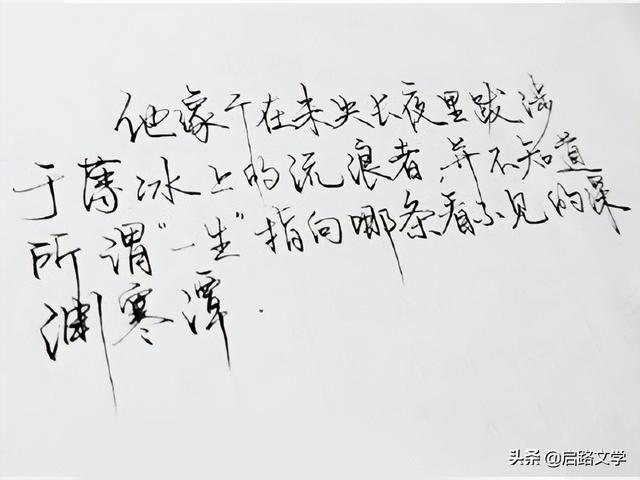 他像个在未央长夜里跋涉
于薄冰上的流浪者,并不知道
所谓“一生”指向哪条看不见的深
渊寒潭.
头条 @启路文学